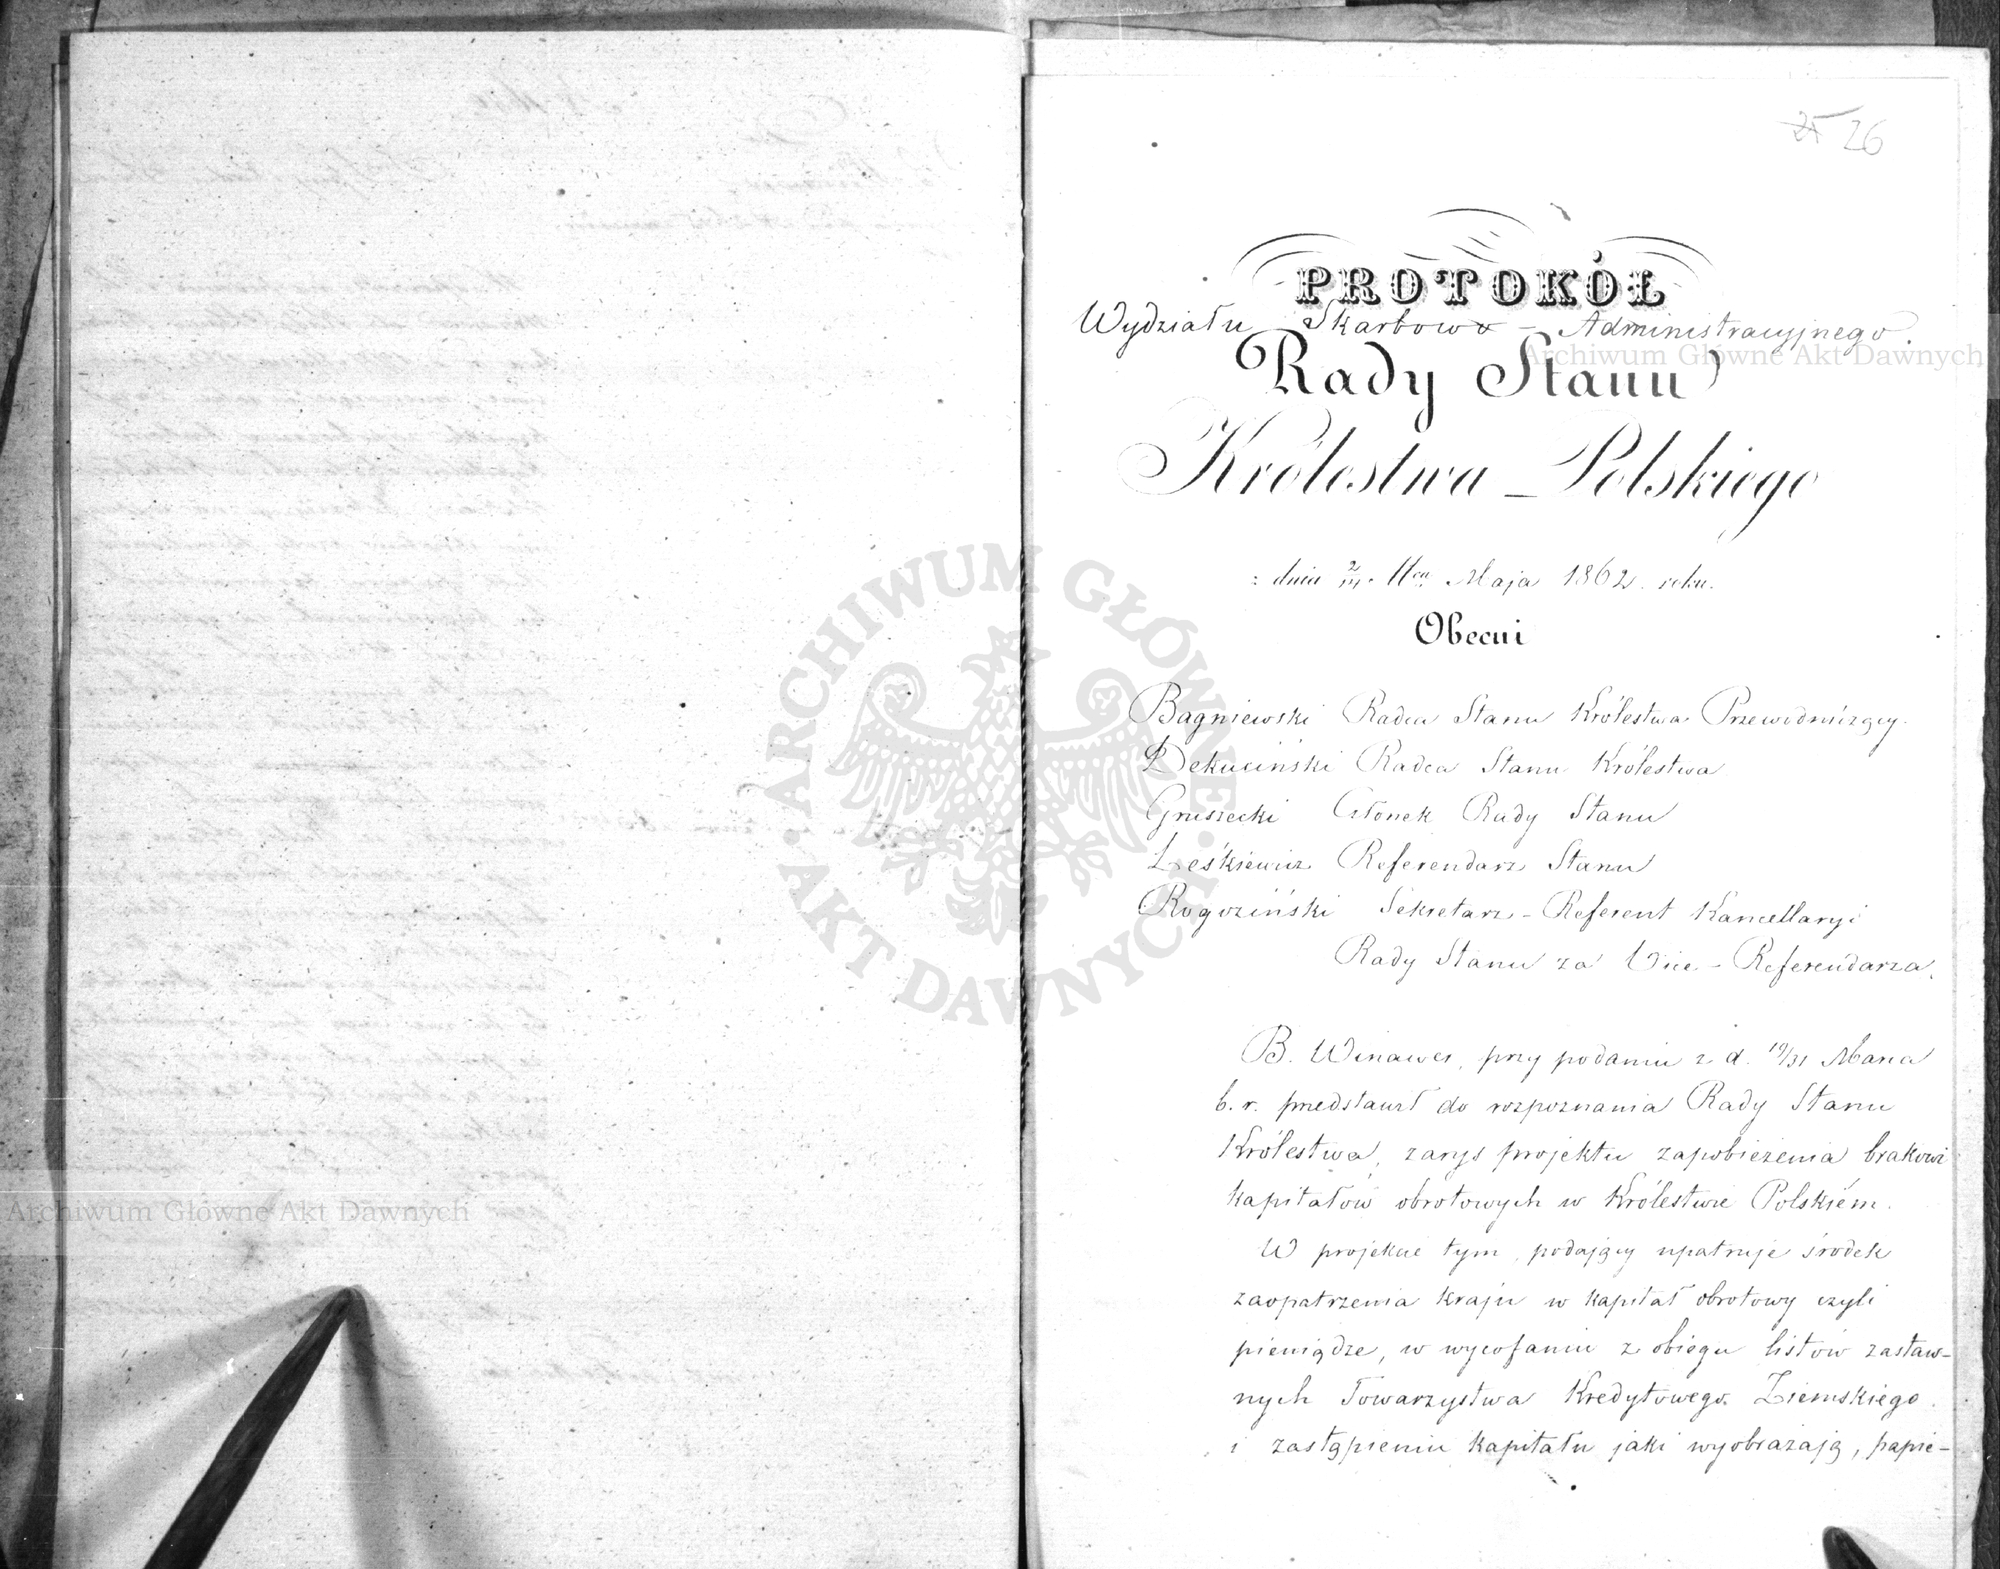 25 26
PROTOKÓŁ
Wydziału Skarbowo - Administracyjnego.
Rady Stanu
Królestwa - Polskiego
dnia Maja 1862 roku.
Obecni
Bagniewski Radca Stanu Królestwa Przewodniczący.
Dekuciński Radca Stanu Królestwa
Gruszecki Członek Rady Stanu
Leśkiewicz Referendarz Stanu
Rogoziński Sekretarz - Referent Kancellaryi
Rady Stanu za Vice - Referendarza.
B. Winawer, przy podaniu z d. 19/31 Marca
b. r. przedstawił do rozpoznania Rady Stanu
Królestwa, zarys projektu zapobieżenia brakowi
kapitałów obrotowych w Królestwie Polskiém.
W projekcie tym, podający upatruje środek
zaopatrzenia kraju w kapitał obrotowy czyli
pieniądze, w wycofaniu z obiegu listów zastaw-
nych Towarzystwa Kredytowego Ziemskiego
i zastąpieniu kapitału jaki wyobrażają, papie-
Archiwum Główne Akt Dawnych
Archiwum Główne Akt Dawnych
ARCHIWUM GŁÓWNE AKT DAWNYCH